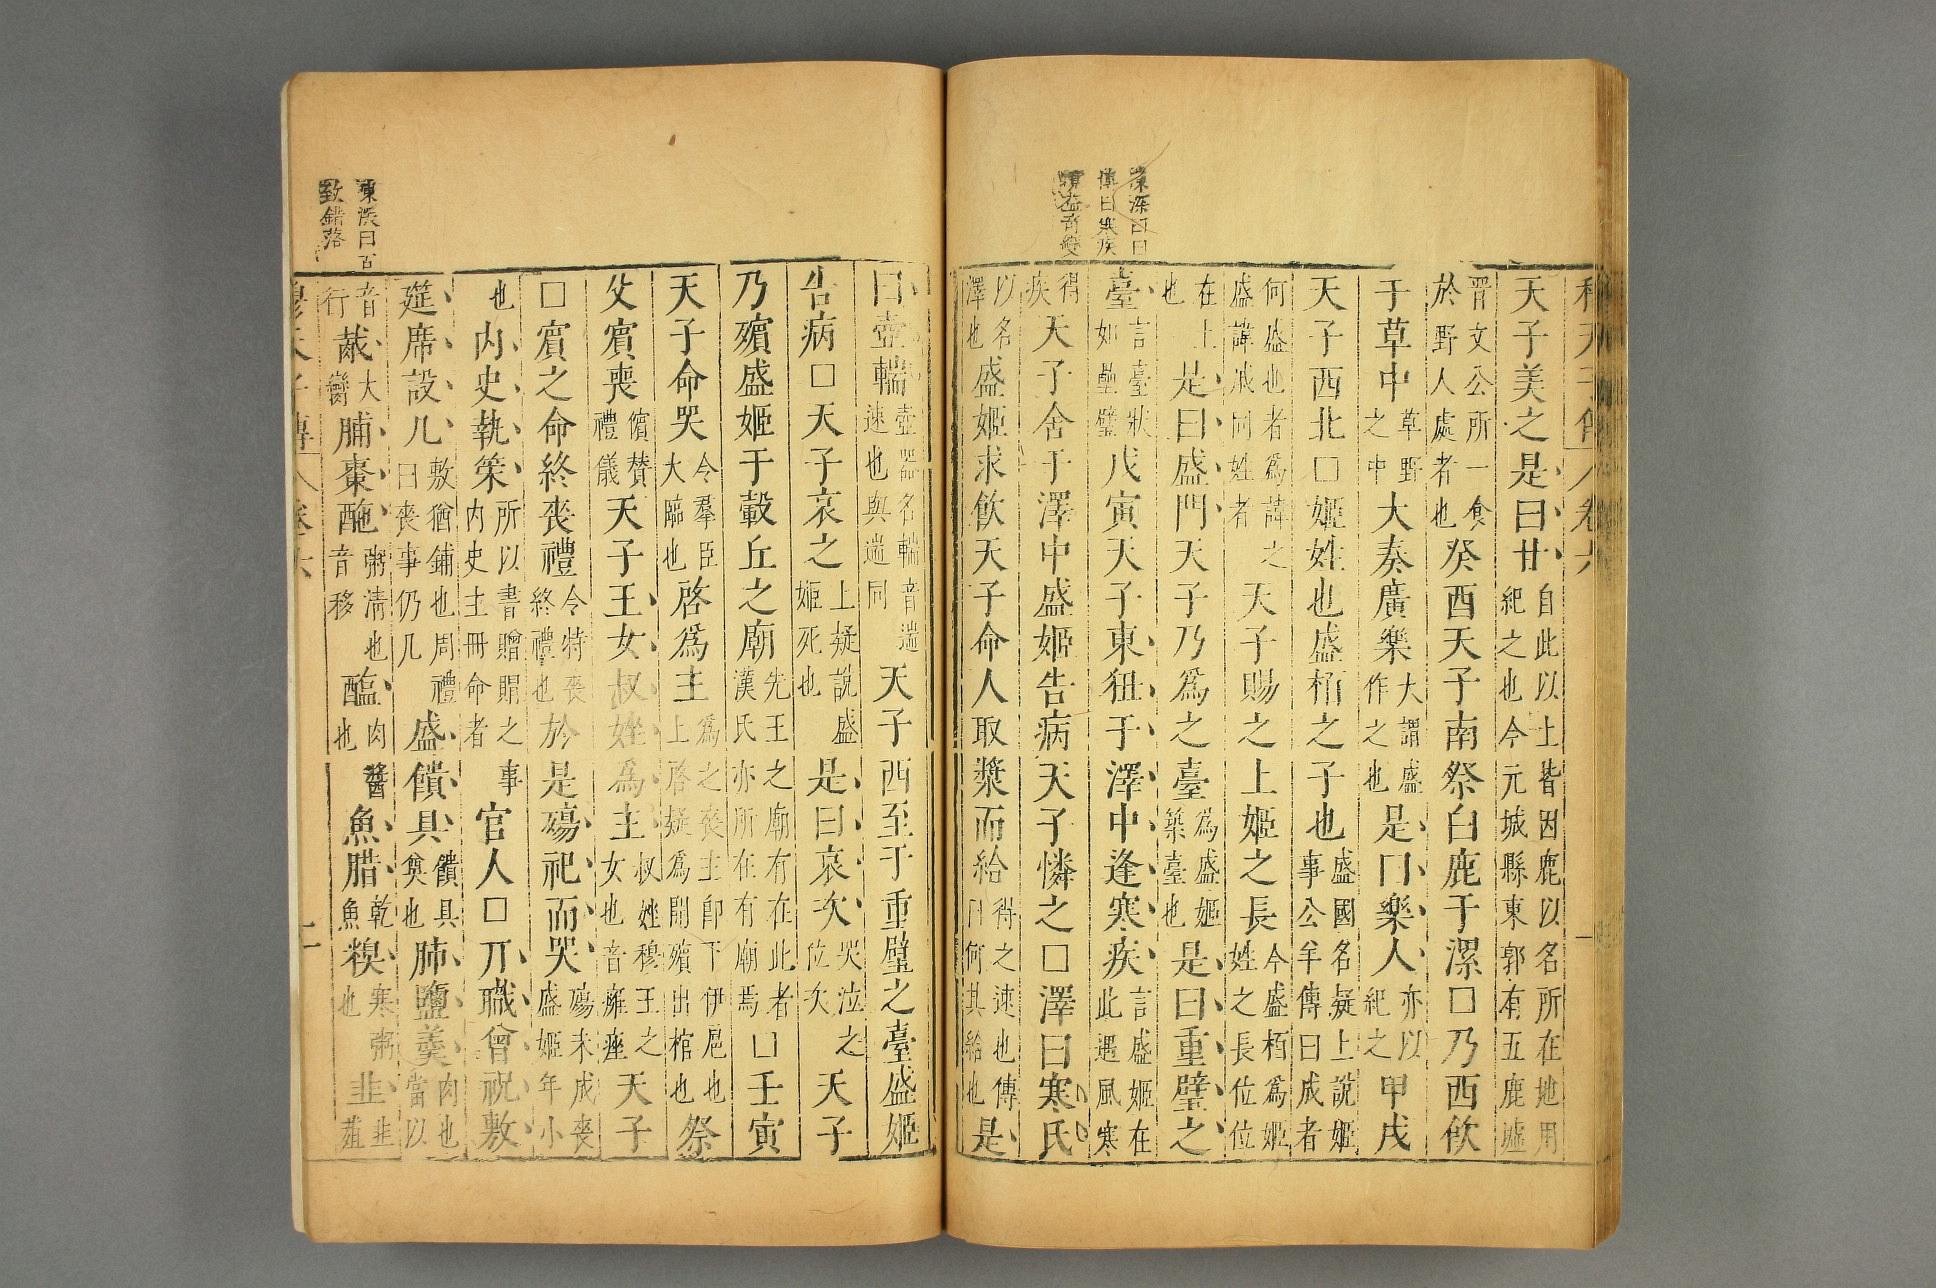 陳深曰曰
傳曰寒疾
穆天子傳 卷六 一
天子美之是曰廿自此以上皆因鹿以名所在地用紀之也今元城縣東郭有五鹿墟
晋文公所一食於野人處者也癸酉天子南祭白鹿于漯□乃西飲
于草中草野之中大奏廣樂大謂盛作之也是曰樂人亦以紀之甲戌
天子西北□姬姓也盛柏之子也盛國名疑上說姬事公羊傳曰成者
何盛也者爲諱之盛諱滅同姓者天子賜之上姬之長今盛栢爲姬姓之長位位
在上也是曰盛門天子乃爲之臺爲盛姬築臺也是曰重璧之
臺言臺狀如壘璧戊寅天子東狃于澤中逢寒疾言盛姬在此遇風寒
得疾天子舍于澤中盛姬告病天子憐之□澤曰寒氏
以名澤也盛姬求飲天子命人取漿而給得之速也傳曰何其給也是
曰壺輲壺器名輲音遄速也與遄同天子西至于重璧之臺盛姬
告病□天子哀之上疑說盛姬死也是曰哀次哭泣之位次天子
乃殯盛姬于轂丘之廟先王之廟有在此者漢氏亦所在有廟焉□壬寅
天子命哭令羣臣大臨也啓爲主爲之喪主卽下伊扈也上啓疑爲開殯出棺也祭
父賓喪儐贊禮儀天子王女叔㛗爲主叔㛗穆王之女也音痽痤天子
□賓之命終喪禮令特喪終禮也於是殤祀而哭殤未成喪盛姬年小
也內史執筞所以書贈賵之事內史主冊命者官人□丌職曾祝敷
筵席設几敷猶鋪也周禮曰喪事仍几盛饋具饋具奠也肺鹽羹肉也當以
音行胾大臠脯棗酏粥清也音移醢肉醬也魚腊乾魚糗寒粥也韭韭菹
穆天子傳 卷六 二
陳深曰古
致錯落